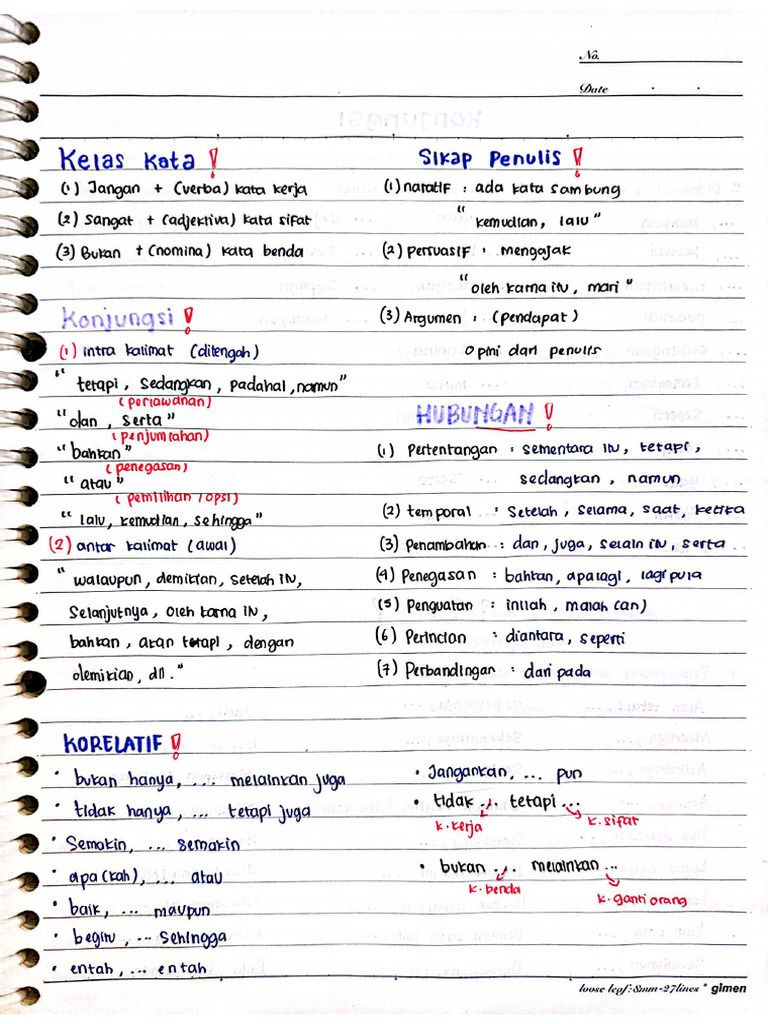 No.
Date
Kelas Kata !
(1) Jangan + (verba) kata kerja
(2) Sangat + (adjektiva) kata sifat
(3) Bukan + (nomina) kata benda
Konjungsi !
(1) intra kalimat (ditengah)
"tetapi, sedangkan, padahal, namun"
(perlawanan)
"dan, serta"
(penjumlahan)
"bahkan"
(penegasan)
"atau"
(pemilihan / opsi)
"lalu, kemudian, sehingga"
(2) antar kalimat (awal)
"walaupun, demikian, setelah itu,
Selanjutnya, oleh karna itu,
bahkan, akan tetapi, dengan
demikian, dll."
Sikap Penulis !
(1) naratif : ada kata sambung
"kemudian, lalu"
(2) Persuasif : mengajak
"oleh karna itu, mari"
(3) Argumen : (pendapat)
Opini dari penulis
HUBUNGAN !
(1) Pertentangan : sementara itu, tetapi,
sedangkan, namun
(2) temporal : Setelah, selama, saat, ketika
(3) Penambahan : dan, juga, selain itu, serta
(4) Penegasan : bahkan, apalagi, lagi pula
(5) Penguatan : inilah, malah (an)
(6) Perincian : diantara, seperti
(7) Perbandingan : dari pada
KORELATIF !
• bukan hanya, ... melainkan juga
• tidak hanya, ... tetapi juga
• Semakin, ... semakin
• apa(kah), ... atau
• baik, ... maupun
• begitu, ... sehingga
• entah, ... entah
• Jangankan, ... pun
• tidak ... tetapi ...
k.kerja k.sifat
• bukan ... melainkan ...
k.benda k.ganti orang
loose leaf:8mm-27lines * glmen